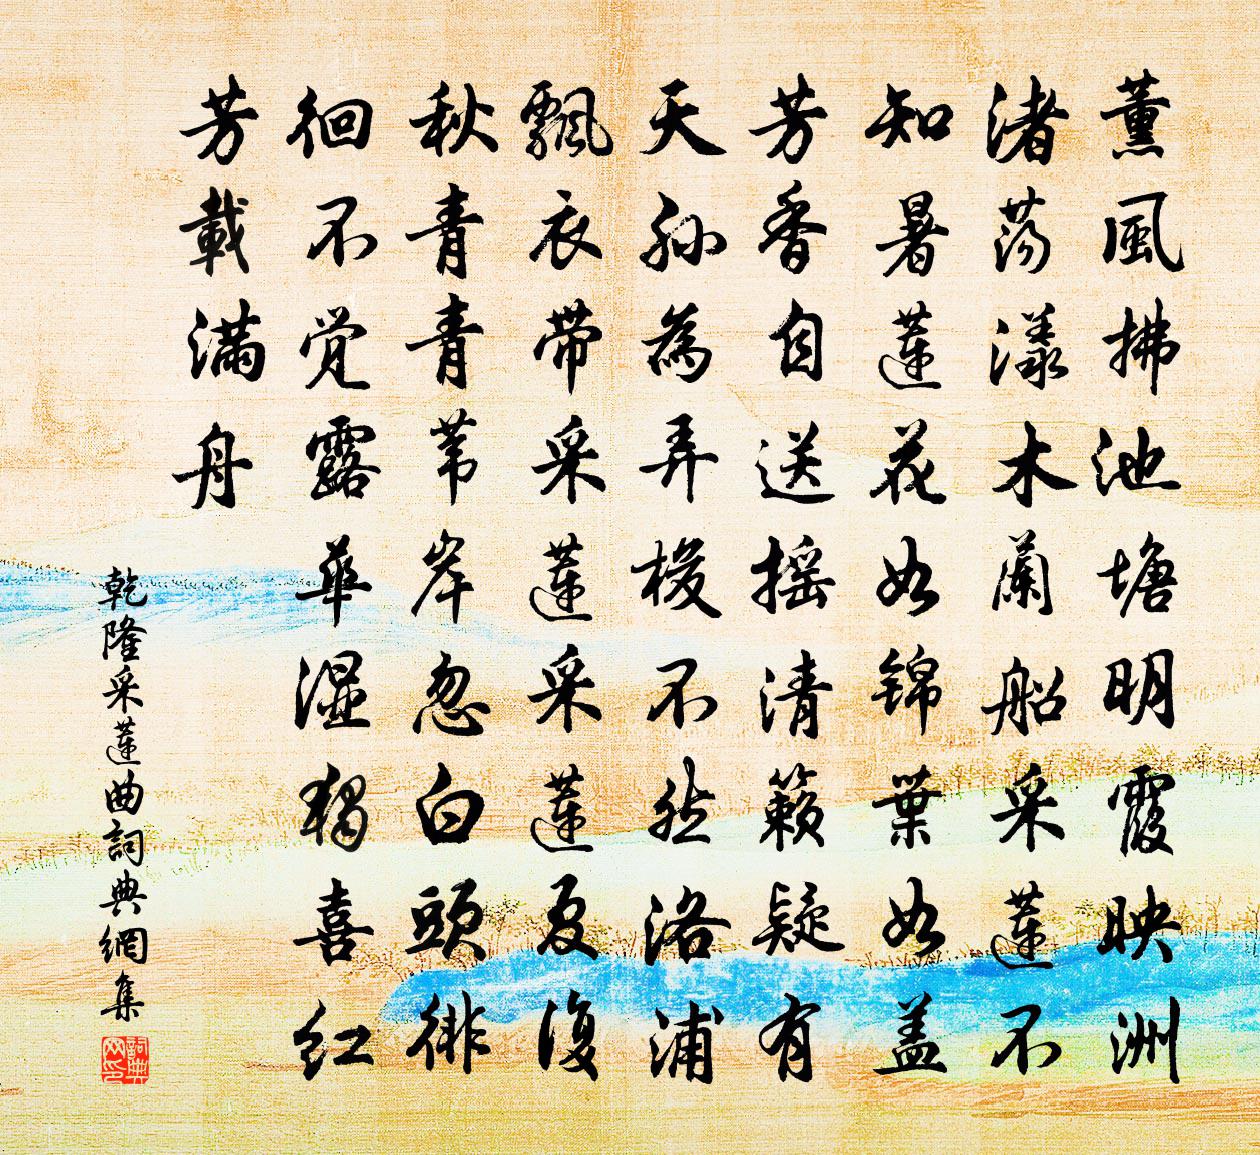 薰風拂池塘明霞映洲
渚蕩漾木蘭船采蓮不
知暑蓮花如錦葉如蓋
芳香自送摇清籟疑有
天孙為弄梭不然洛浦
飄衣帶采蓮采蓮夏復
秋青青苇岸忽白頭徘
徊不覺露華濕獨喜红
芳載滿舟
乾隆采蓮曲詞典網集
詞典
网印